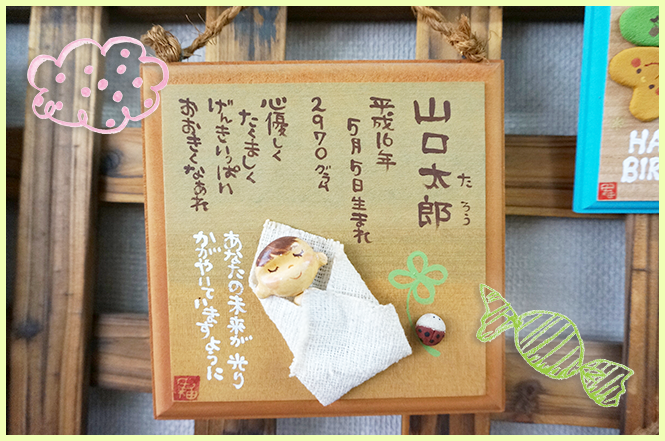 山口太郎
たろう
平成16年
5月5日生まれ
2970グラム
心優しく
たくましく
げんきいっぱい
おおきくなあれ
あなたの未来が光り
かがやいていますように
HA
BIR